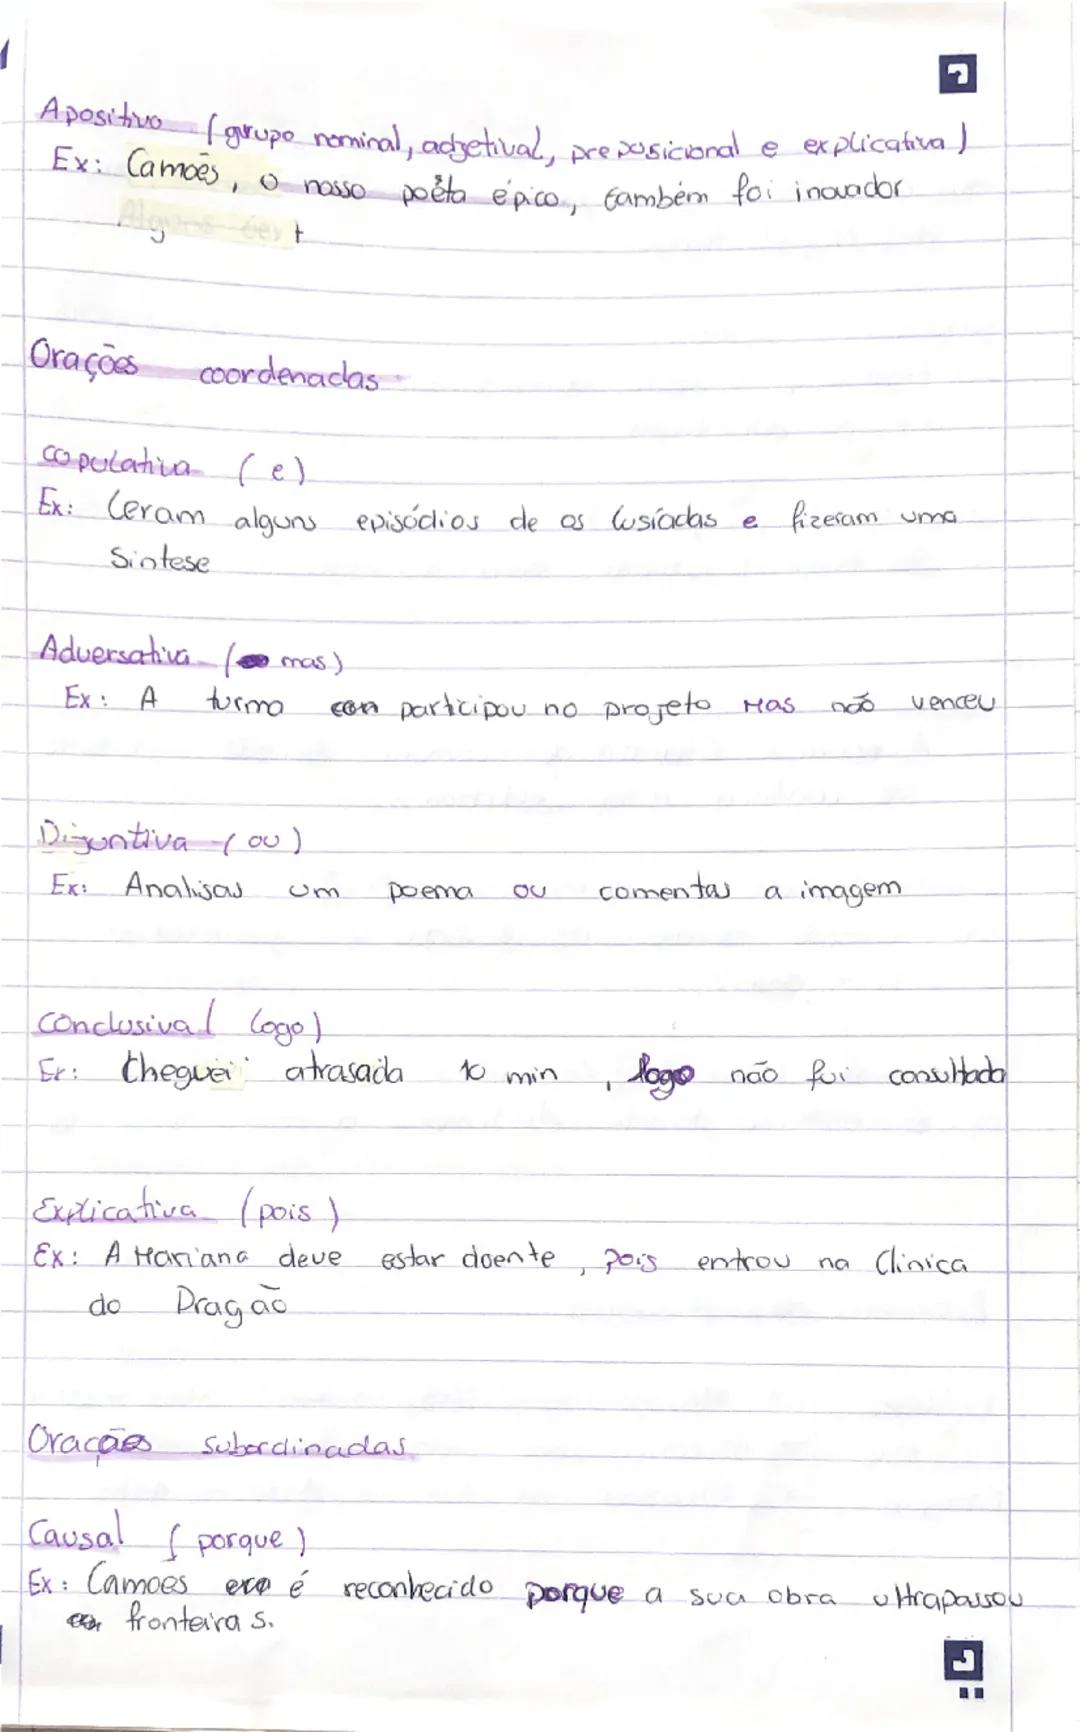 Apositivo (grupo nominal, adjetival, preposicional e explicativa)
Ex: Camões, o nosso poéta épico, também foi inovador
Alguns
Orações coordenadas
copulativa (e)
Ex: Leram alguns episódios de os lusíadas e fizeram uma
Sintese
Adversativa (mas)
Ex: A turma participou no projeto Mas não venceu
Dijuntiva (ou)
Ex: Analisas um poema ou comentas a imagem
Conclusiva (logo)
Ex: Cheguei atrasada 10 min, logo não fui consultada
Explicativa (pois)
Ex: A Mariana deve estar doente, pois entrou na Clinica
do Dragão
Orações subordinadas
Causal (porque)
Ex: Camoes é reconhecido porque a sua obra ultrapassou
fronteiras.